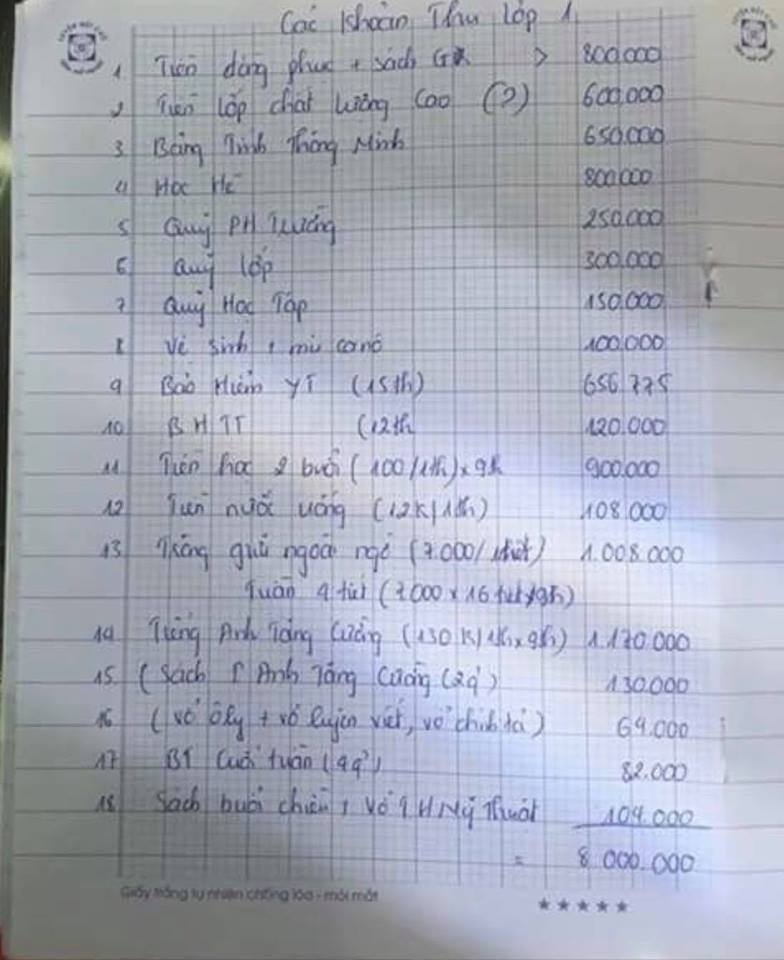 Các Khoản Thu Lớp 1
1 Tiền đồng phục + sách GK > 800.000
2 Tiền lớp chất lượng cao (?) 600.000
3 Bảng Tính Thông Minh 650.000
4 Học Hè 800.000
5 Quỹ PH Trường 250.000
6 Quỹ lớp 300.000
7 Quỹ Học Tập 150.000
8 Vệ sinh + mũ ca nô 100.000
9 Bảo Hiểm YT (15th) 656.775
10 BHTT (12th 120.000
11 Tiền học 2 buổi (100/1th) x 9th 900.000
12 Tiền nước uống (12K/1th) 108.000
13 Trông giữ ngoài giờ (7.000/1tiết) 1.008.000
Tuần 4 tiết (7.000 x 16 tiết/9th)
14 Tiếng Anh Tăng Cường (130K/1th x 9th) 1.170.000
15 (Sách T Anh Tăng Cường (2q') 130.000
16 (vở ôly + vở luyện viết, vở chính tả) 64.000
17 BT Cuối tuần (4q') 82.000
18 Sách buổi chiều + vở TH Mỹ Thuật 104.000
= 8.000.000
Giấy trắng tự nhiên chống lóa - mỏi mắt